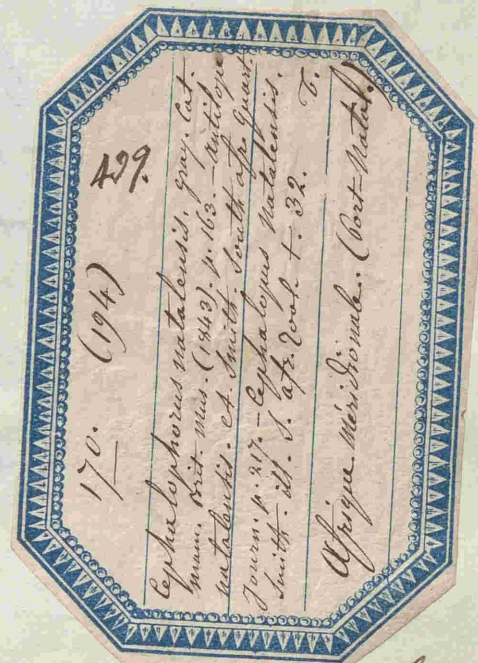 170. (194) 429.
Cephalophorus natalensis, gray. Cat.
mam. Brit. Mus. (1843). p. 163. - Antilope
natalensis. A. Smith. South afr. quart
Journ. p. 217. - Cephalopus natalensis.
Smith. ill. S. afr. Zool. t. 32.
Afrique méridionale. (Port-Natal.)